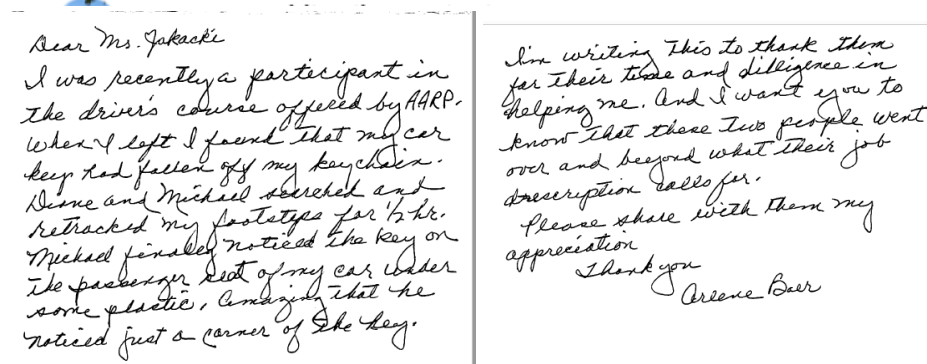 Dear Ms. Jakacki
I was recently a participant in
the driver's course offered by AARP.
When I left I found that my car
key had fallen off my keychain.
Diane and Michael searched and
retracked my footsteps for 1/2 hr.
Michael finally noticed the key on
the passenger seat of my car under
some plastic. Amazing that he
noticed just a corner of the key.
I'm writing this to thank them
for their time and dilligence in
helping me. And I want you to
know that these two people went
over and beeyond what their job
drescription calls for.
Please share with them my
appreciation
Thank you
Arlene Baer